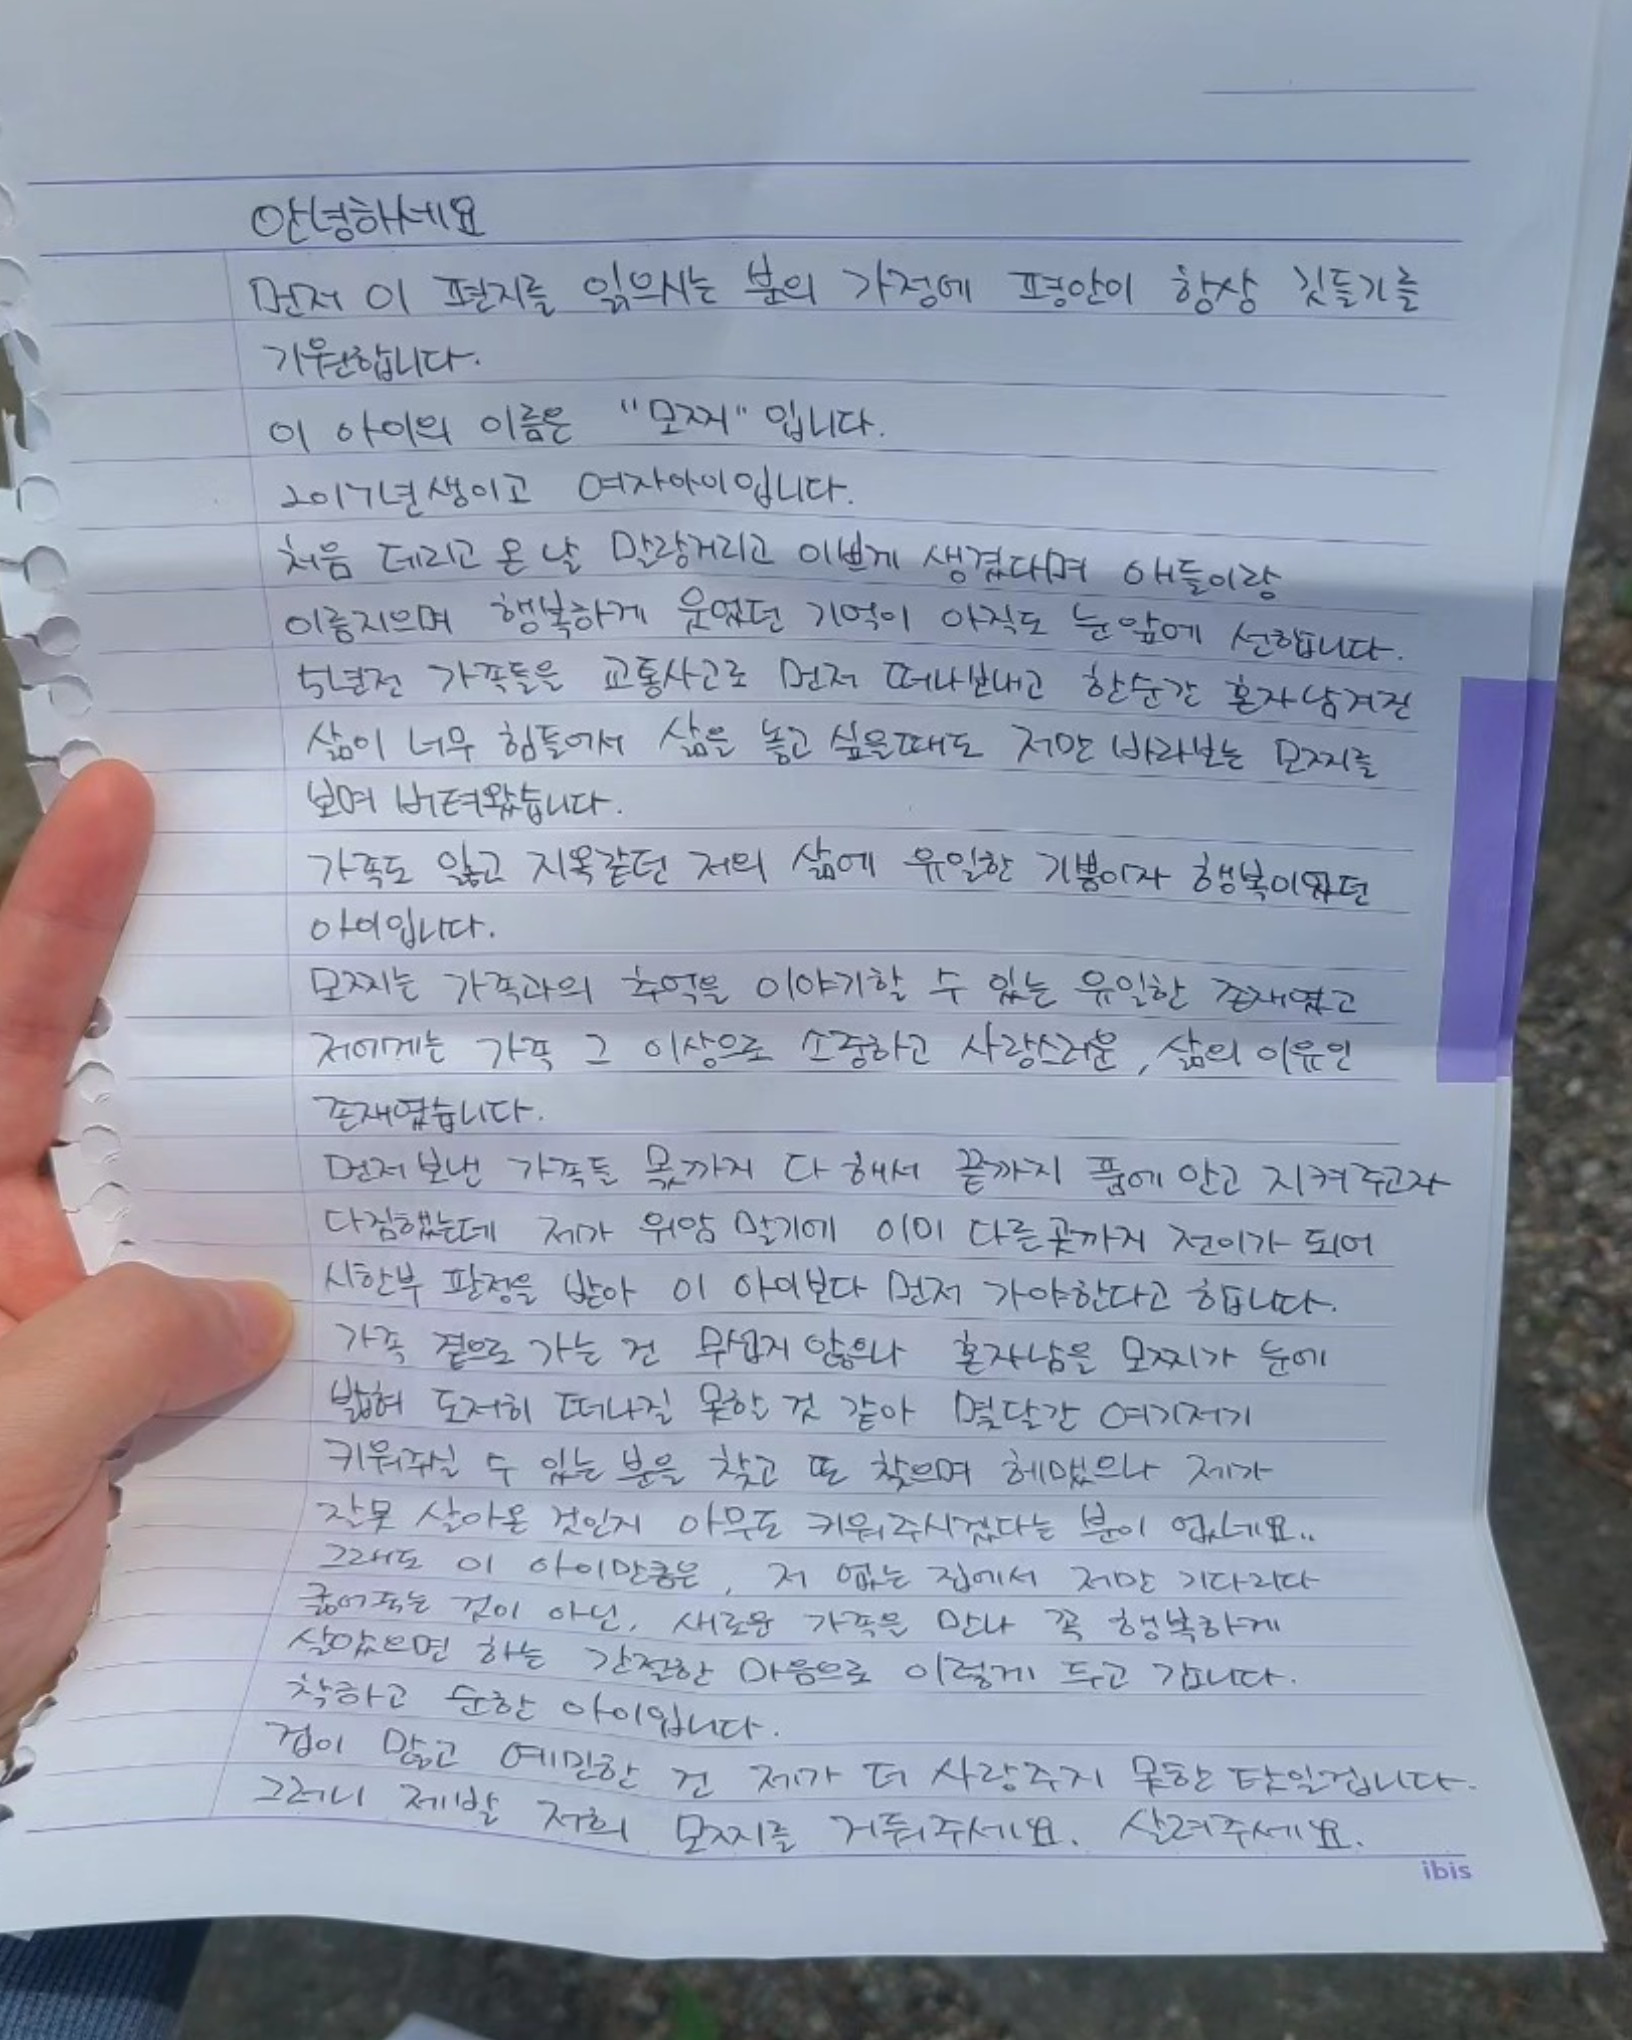 안녕하세요
먼저 이 편지를 읽으시는 분의 가정에 평안이 항상 깃들기를
기원합니다.
이 아이의 이름은 "모찌"입니다.
2017년생이고 여자아이입니다.
처음 데리고 온 날 말랑거리고 이쁘게 생겼다며 애들이랑
이름지으며 행복하게 웃었던 기억이 아직도 눈앞에 선합니다.
5년전 가족들을 교통사고로 먼저 떠나보내고 한순간 혼자남겨진
삶이 너무 힘들어서 삶을 놓고 싶을때도 저만 바라보는 모찌를
보며 버텨왔습니다.
가족도 잃고 지옥같던 저의 삶에 유일한 기쁨이자 행복이었던
아이입니다.
모찌는 가족과의 추억을 이야기할 수 있는 유일한 존재였고
저에게는 가족 그 이상으로 소중하고 사랑스러운, 삶의 이유인
존재였습니다.
먼저보낸 가족들 몫까지 다 해서 끝까지 품에 안고 지켜주고자
다짐했는데 제가 위암 말기에 이미 다른곳까지 전이가 되어
시한부 판정을 받아 이 아이보다 먼저 가야한다고 합니다.
가족 곁으로 가는 건 무섭지 않으나 혼자남을 모찌가 눈에
밟혀 도저히 떠나질 못할 것 같아 몇달간 여기저기
키워주실 수 있는 분을 찾고 또 찾으며 헤맸으나 제가
잘못 살아온 것인지 아무도 키워주시겠다는 분이 없네요..
그래도 이 아이만큼은, 저 없는 집에서 저만 기다리다
굶어죽는 것이 아닌, 새로운 가족을 만나 꼭 행복하게
살았으면 하는 간절한 마음으로 이렇게 두고 갑니다.
착하고 순한 아이입니다.
겁이 많고 예민한 건 제가 더 사랑주지 못한 탓일겁니다.
그러니 제발 저희 모찌를 거둬주세요. 살려주세요.
ibis